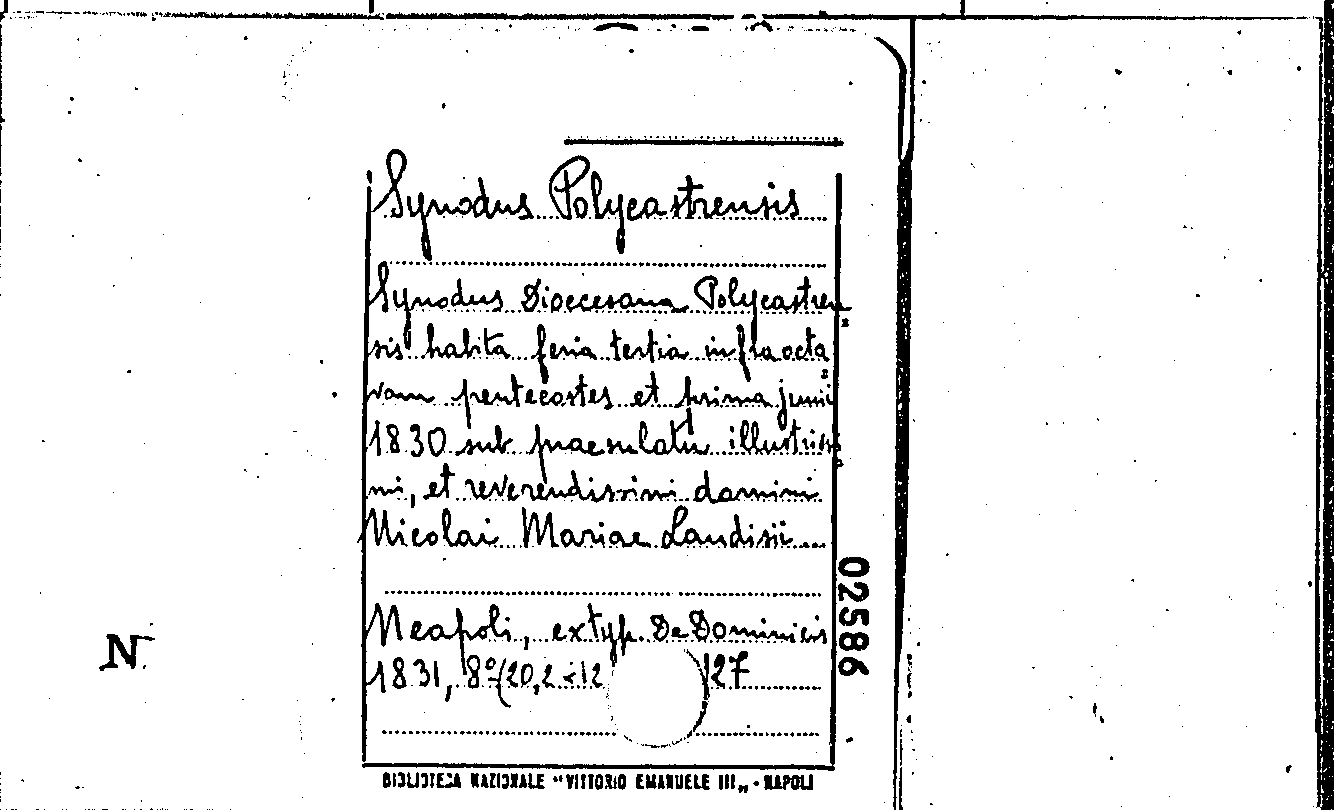 Synodus Polycastrensis
Synodus Dioecesana Polycastren=
sis habita feria tertia infra octa=
vam pentecostes et prima junii
1830 sub praesulatu illustrissi=
mi, et reverendissimi domini
Nicolai Mariae Laudisii...
Neapoli, ex typ. De Dominicis
1831, 8º (20,2 × 12 127
02586
N
BIBLIOTECA NAZIONALE "VITTORIO EMANUELE III„ - NAPOLI